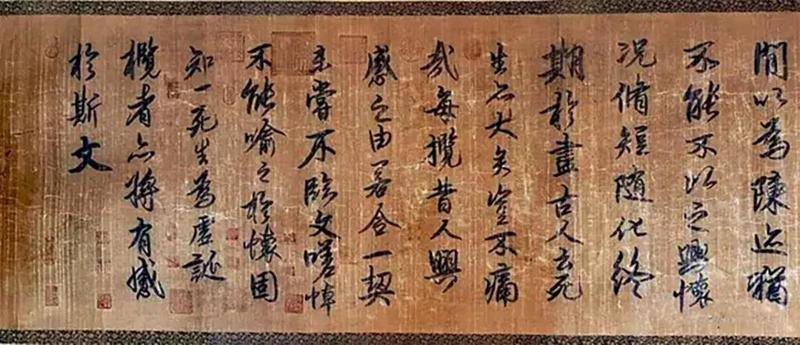 間以為陳迹猶
不能不以之興懷
況脩短隨化終
期於盡古人云死
生亦大矣豈不痛
哉每攬昔人興
感之由若合一契
未嘗不臨文嗟悼
不能喻之於懷固
知一死生為虛誕
攬者亦將有感
於斯文